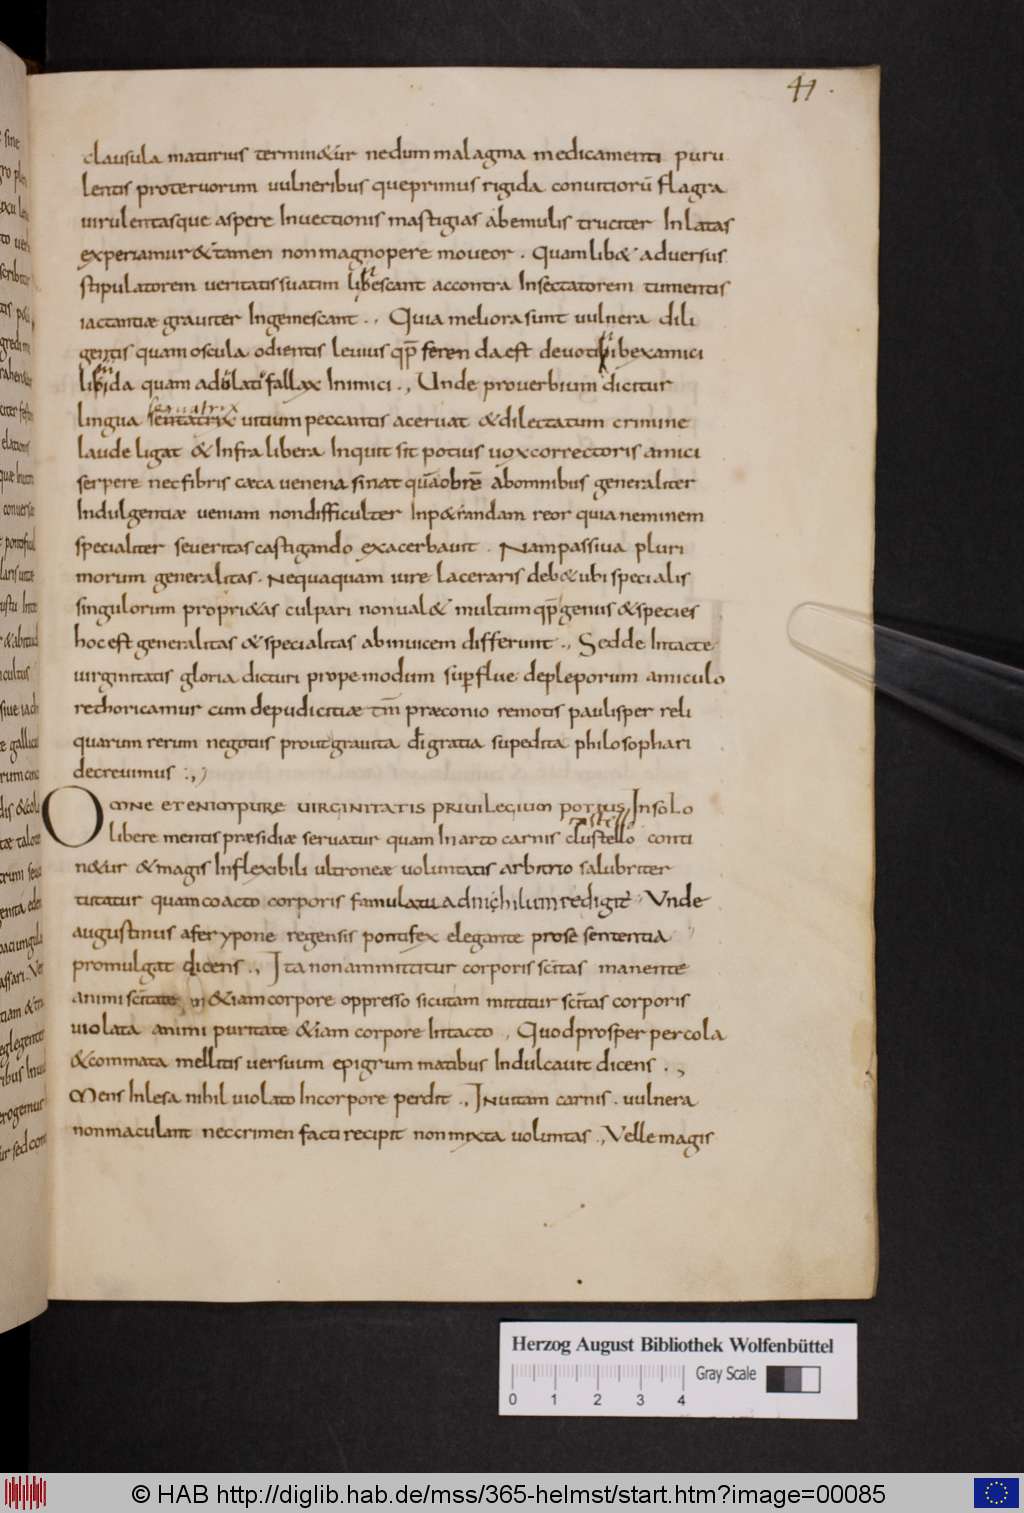 41.
clausula maturius termin&ur nedum malagma medicamenti puru
lentis proteruorum uulneribus queprimus rigida conuitiorū flagra
uirulentasque aspere Inuectionis mastigias abemulis truciter Inlatas
experiamur &tamen nonmagnopere moueor . Quamlib& aduersus
stipulatorem ueritatis suatim escant accontra Insectatorem tumentis
iactantiæ grauiter Ingemescant . , Quia meliora sunt uulnera dili
gentis quam oscula odientis leuius qp̄ ferenda est bexamici
quam fallax Inimici . , Unde prouerbium dicitur
lingua uitium peccantis aceruat &dilectatum crimine
laude ligat & Infra libera Inquit sit potius uox correctoris amici
serpere nec fibris cæca uenena sinat quāobrē Abomnibus generaliter
Indulgentiæ ueniam nondifficulter Inp&randam reor quia neminem
specialiter seueritas castigando exacerbauit . Nam passiua pluri
morum generalitas . Nequaquam iure laceraris deb& ubi specialis
singulorum propri&as culpari nonual& multum qp̄ genus &species
hoc est generalitas &specialitas abinuicem differunt . , Sedde Intacte
uirginitatis gloria dicturi propemodum sup̄flue depleporum amiculo
rethoricamur cum depudicitiæ tm̄ præconio remotis paulisper reli
quarum rerum negotiis prout grauita dī gratia supedita philosophari
decreuimus : , )
Omne etenim pure uirginitatis priuilegium potius Insolo
libere mentis præsidiæ seruatur quam Inarto carnis clustello conti
n&ur &magis Inflexibili ultroneæ uoluntatis arbitrio salubriter
tutatur quam coacto corporis famulatu adnichilum redigitē Unde
augustinus afer yponeregensis pontifex elegante prose sententia
promulgat dicens . , Ita nonammittitur corporis sc̄itas manente
animi &iam corpore oppresso sicutam mittitur sc̄itas corporis
uiolata animi puritate &iam corpore Intacto , Quod prosper percola
&commata mellitis uersuum epigrummatibus Indulcauit dicens . ,
Mens Inlesa nihil uiolato Incorpore perdit . , Inuitam carnis . uulnera
nonmaculant neccrimen facti recipit nonmixta uoluntas . , Velle magis
Herzog August Bibliothek Wolfenbüttel
Gray Scale
0 1 2 3 4
© HAB http://diglib.hab.de/mss/365-helmst/start.htm?image=00085